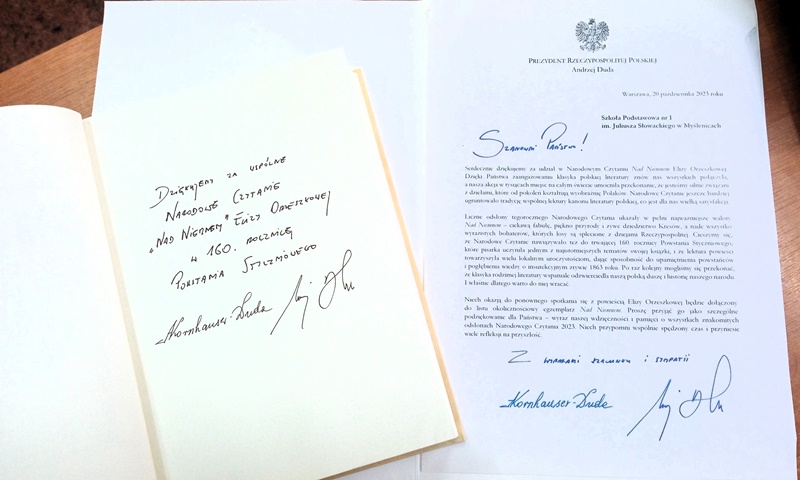 Dziękujemy za wspólne
Narodowe Czytanie
„Nad Niemnem" Elizy Orzeszkowej
w 160. rocznicę
Powstania Styczniowego
Kornhauser-Duda
Prezydent Rzeczypospolitej Polskiej
Andrzej Duda
Warszawa, 20 października 2023 roku
Szkoła Podstawowa nr 1
im. Juliusza Słowackiego w Myślenicach
Szanowni Państwo!
Serdecznie dziękujemy za udział w Narodowym Czytaniu Nad Niemnem Elizy Orzeszkowej.
Dzięki Państwa zaangażowaniu klasyka polskiej literatury znów nas wszystkich połączyła,
a nasza akcja w tysiącach miejsc na całym świecie umocniła przekonanie, że jesteśmy silnie związani
z dziełami, które od pokoleń kształtują wyobraźnię Polaków. Narodowe Czytanie jeszcze bardziej
ugruntowało tradycję wspólnej lektury kanonu literatury polskiej, co jest dla nas wielką satysfakcją.
Liczne odsłony tegorocznego Narodowego Czytania ukazały w pełni najważniejsze walory
Nad Niemnem – ciekawą fabułę, piękno przyrody i żywe dziedzictwo Kresów, a nade wszystko
wyrazistych bohaterów, których losy są splecione z dziejami Rzeczypospolitej. Cieszymy się,
że Narodowe Czytanie nawiązywało też do trwającej 160. rocznicy Powstania Styczniowego,
które pisarka uczyniła jednym z najistotniejszych tematów swojej książki, i że lektura powieści
towarzyszyła wielu lokalnym uroczystościom, dając sposobność do upamiętnienia powstańców
i pogłębienia wiedzy o insurekcyjnym zrywie 1863 roku. Po raz kolejny mogliśmy się przekonać,
że klasyka rodzimej literatury wspaniale odzwierciedla naszą polską duszę i historię naszego narodu.
I właśnie dlatego warto do niej wracać.
Niech okazją do ponownego spotkania się z powieścią Elizy Orzeszkowej będzie dołączony
do listu okolicznościowy egzemplarz Nad Niemnem. Proszę przyjąć go jako szczególne
podziękowanie dla Państwa – wyraz naszej wdzięczności i pamięci o wszystkich znakomitych
odsłonach Narodowego Czytania 2023. Niech przypomni wspólnie spędzony czas i przyniesie
wiele refleksji na przyszłość.
Z wyrazami szacunku i sympatii
Kornhauser-Duda